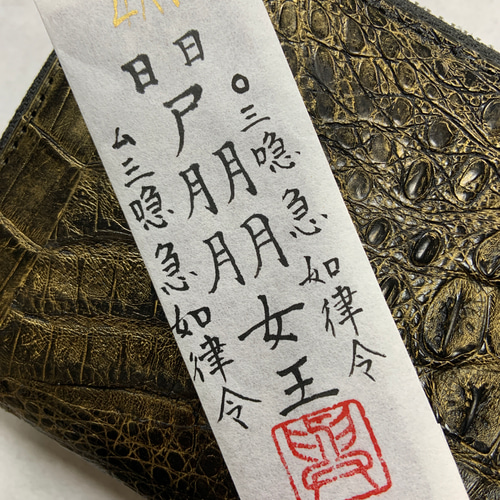 〇三喼急如律令
日日
尸
月月
月月
女王
厶三喼急如律令